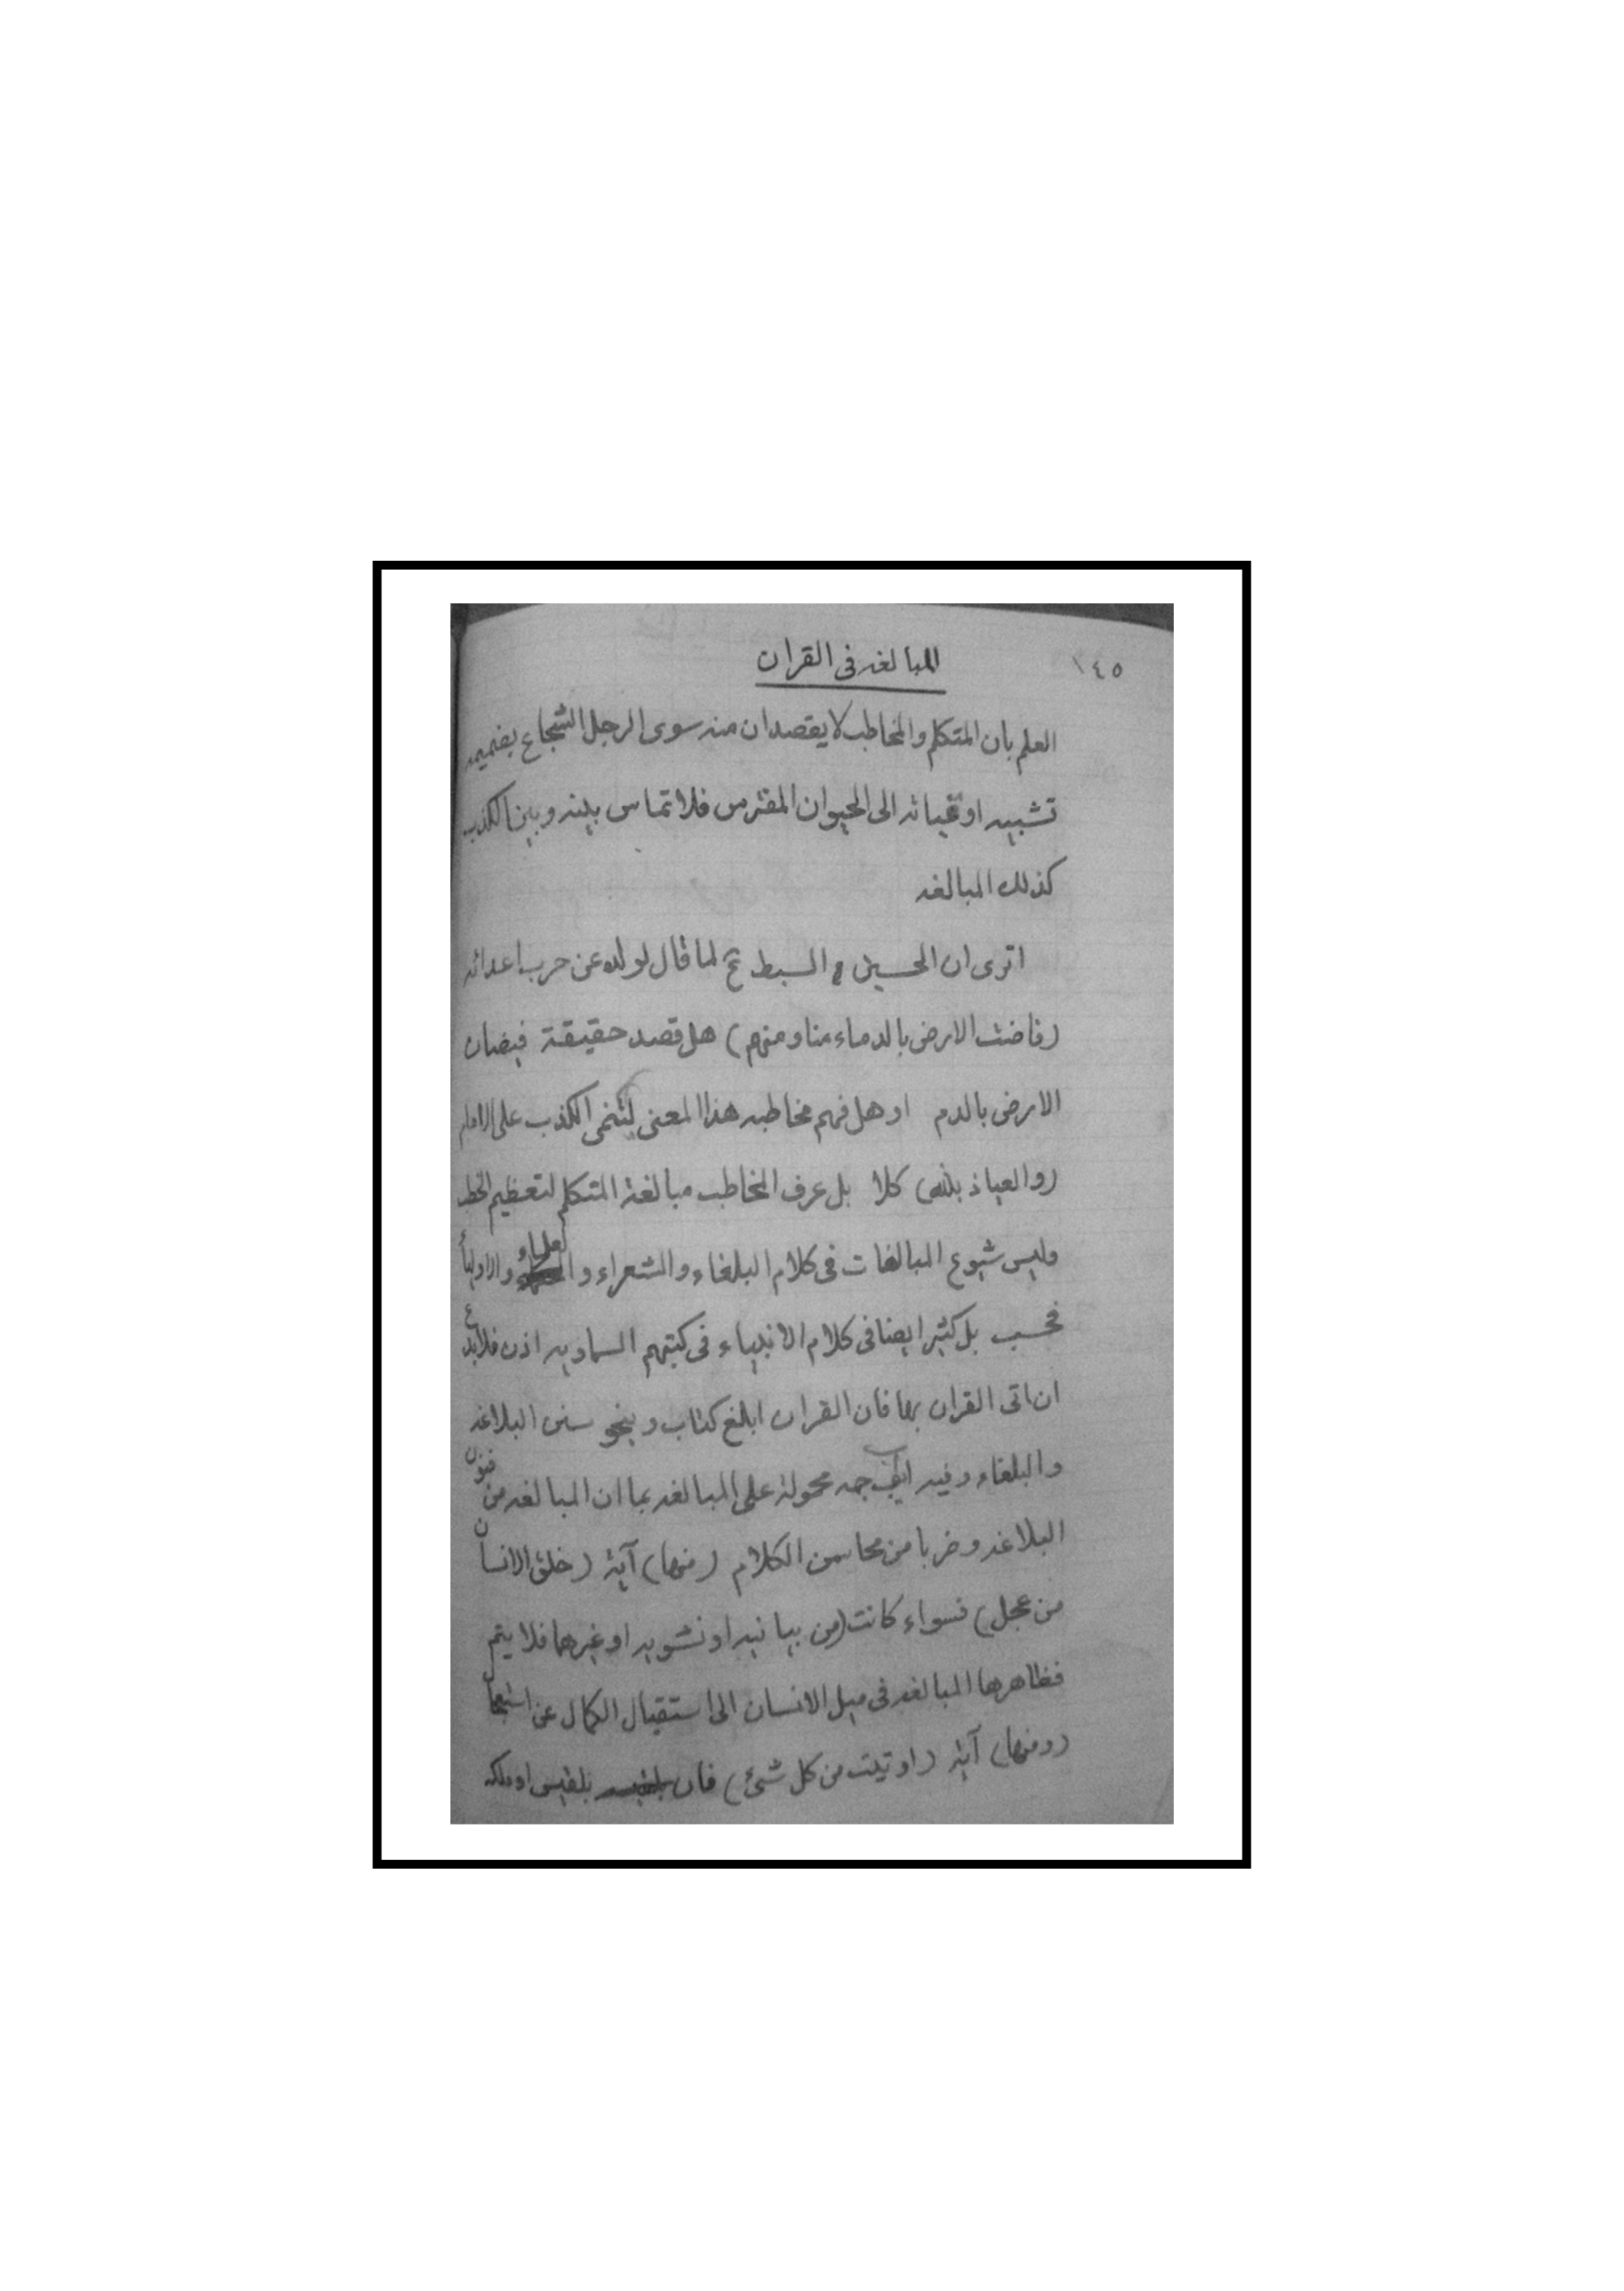 ١٤٥
المبالغه فى القران
العلم بان المتكلم والمخاطب لا يقصدان منه سوى الرجل الشجاع بضميمه
تشبيه او الى الحيوان المفترس فلا تماس بينه وبين الكذب
كذلك المبالغه
اترى ان الحسين السبط ع لما قال لولده عن حرب اعدائه
(فاضت الارض بالدماء منا ومنهم) هل قصد حقيقة فيضان
الارض بالدم او هل فهم مخاطبه هذا المعنى الكذب على الامام
(والعياذ بالله) كلا بل عرف المخاطب مبالغة المتكلم لتعظيم الخطب
وليس شيوع المبالغات فى كلام البلغاء والشعراء والعلماء والاولياء
فحسب بل كثير ايضا فى كلام الانبياء فى كتبهم السماويه اذن فلا بدع
ان اتى القران بها فان القران ابلغ كتاب وينحو سنن البلاغه
والبلغاء وفيه جمه محمولة على المبالغه بما ان المبالغه من فنون
البلاغه وضربا من محاسن الكلام (منها) آية (خلق الانسان
من عجل) فسواء كانت (من بيانيه او نشويه او غيرها فلا يتم
فظاهرها المبالغه فى ميل الانسان الى استقبال الكمال عن استعجال
(ومنها) آية (اوتيت من كل شئ) فان بلقيس او ملكه